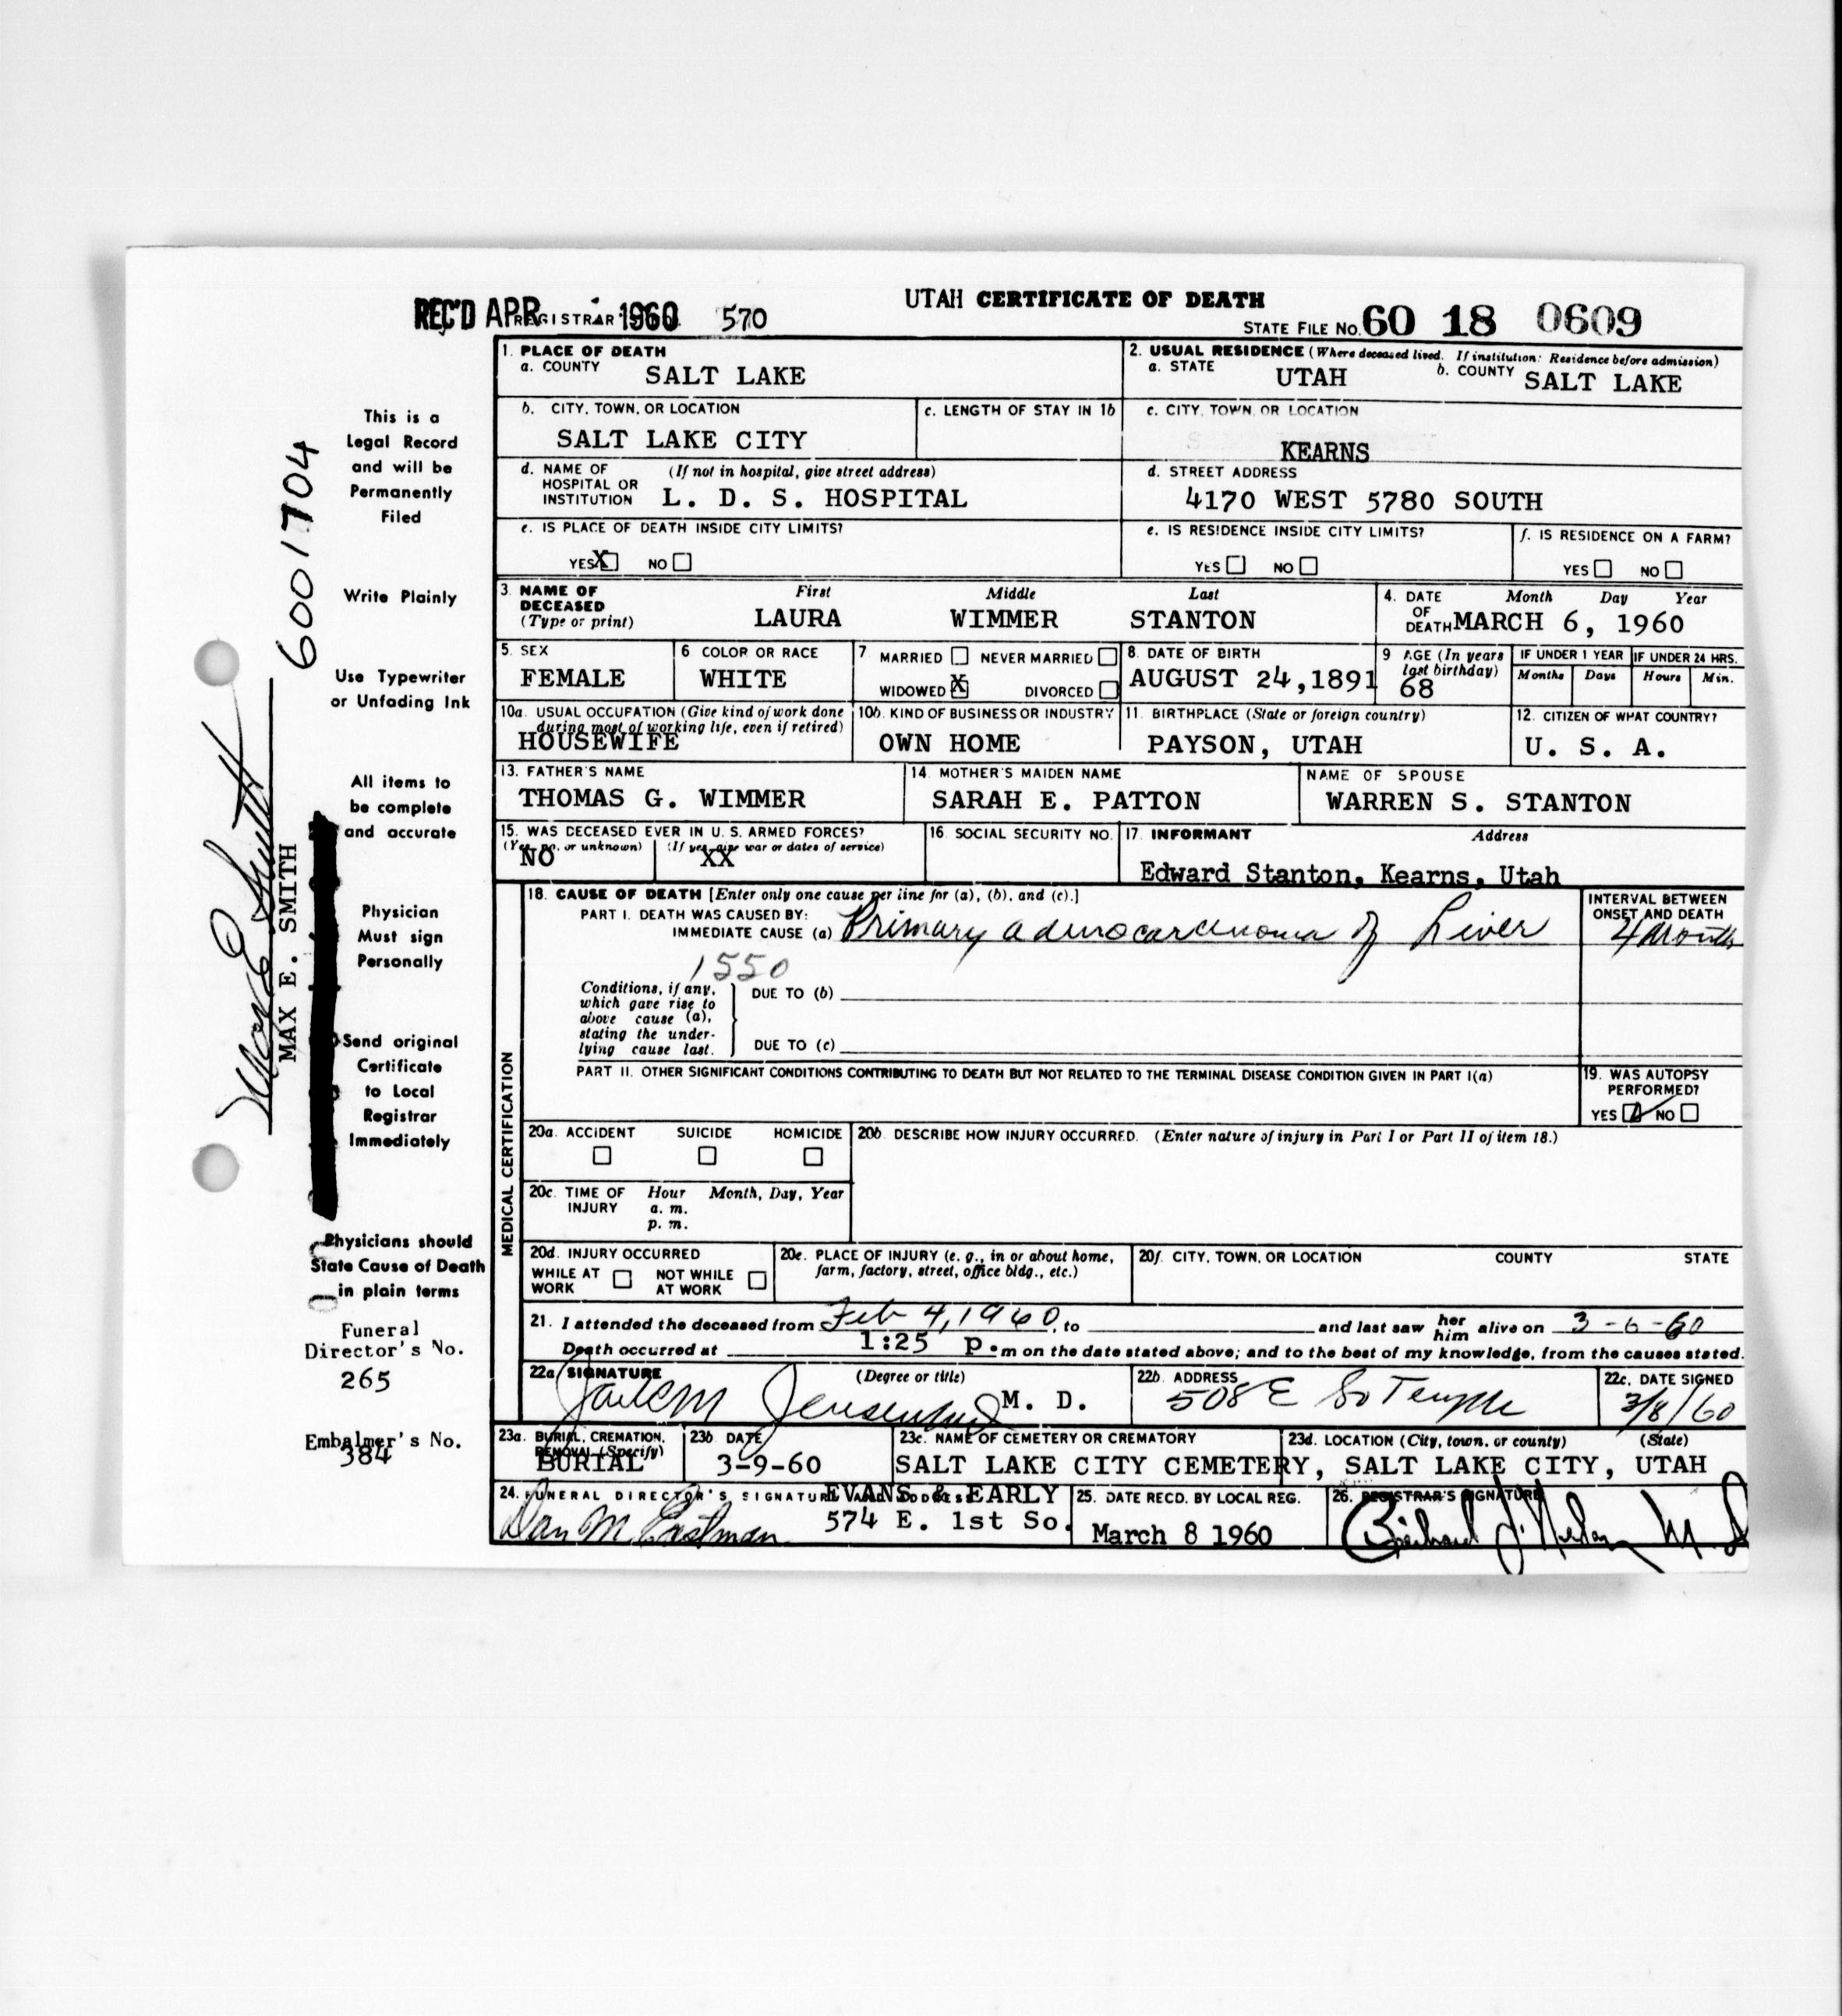 UTAH CERTIFICATE OF DEATH
REC'D APR 1960 REGISTRAR 570
STATE FILE NO. 60 18 0609
1. PLACE OF DEATH
a. COUNTY SALT LAKE
2. USUAL RESIDENCE (Where deceased lived. If institution: Residence before admission)
a. STATE UTAH b. COUNTY SALT LAKE
b. CITY, TOWN, OR LOCATION
SALT LAKE CITY
c. LENGTH OF STAY IN 1b
c. CITY, TOWN, OR LOCATION
KEARNS
d. NAME OF HOSPITAL OR INSTITUTION (If not in hospital, give street address)
L. D. S. HOSPITAL
d. STREET ADDRESS
4170 WEST 5780 SOUTH
e. IS PLACE OF DEATH INSIDE CITY LIMITS?
YES X NO
e. IS RESIDENCE INSIDE CITY LIMITS?
YES NO
f. IS RESIDENCE ON A FARM?
YES NO
3. NAME OF DECEASED (Type or print)
First Middle Last
LAURA WIMMER STANTON
4. DATE OF DEATH Month Day Year
MARCH 6, 1960
5. SEX
FEMALE
6 COLOR OR RACE
WHITE
7 MARRIED NEVER MARRIED
WIDOWED X DIVORCED
8. DATE OF BIRTH
AUGUST 24,1891
9 AGE (In years last birthday)
68
IF UNDER 1 YEAR IF UNDER 24 HRS.
Months Days Hours Min.
10a. USUAL OCCUPATION (Give kind of work done during most of working life, even if retired)
HOUSEWIFE
10b. KIND OF BUSINESS OR INDUSTRY
OWN HOME
11. BIRTHPLACE (State or foreign country)
PAYSON, UTAH
12. CITIZEN OF WHAT COUNTRY?
U. S. A.
13. FATHER'S NAME
THOMAS G. WIMMER
14. MOTHER'S MAIDEN NAME
SARAH E. PATTON
NAME OF SPOUSE
WARREN S. STANTON
15. WAS DECEASED EVER IN U. S. ARMED FORCES?
(Yes, no, or unknown) (If yes, give war or dates of service)
NO XX
16. SOCIAL SECURITY NO.
17. INFORMANT Address
Edward Stanton, Kearns, Utah
MEDICAL CERTIFICATION
18. CAUSE OF DEATH [Enter only one cause per line for (a), (b), and (c).]
PART I. DEATH WAS CAUSED BY:
IMMEDIATE CAUSE (a) Primary adenocarcinoma of Liver
INTERVAL BETWEEN ONSET AND DEATH
4 Months
1550
Conditions, if any, which gave rise to above cause (a), stating the underlying cause last.
DUE TO (b)
DUE TO (c)
PART II. OTHER SIGNIFICANT CONDITIONS CONTRIBUTING TO DEATH BUT NOT RELATED TO THE TERMINAL DISEASE CONDITION GIVEN IN PART I(a)
19. WAS AUTOPSY PERFORMED?
YES NO
20a. ACCIDENT SUICIDE HOMICIDE
20b. DESCRIBE HOW INJURY OCCURRED. (Enter nature of injury in Part I or Part II of item 18.)
20c. TIME OF INJURY Hour Month, Day, Year
a. m.
p. m.
20d. INJURY OCCURRED
WHILE AT WORK NOT WHILE AT WORK
20e. PLACE OF INJURY (e. g., in or about home, farm, factory, street, office bldg., etc.)
20f. CITY, TOWN, OR LOCATION COUNTY STATE
21. I attended the deceased from Feb 4, 1960, to and last saw her him alive on 3-6-60
Death occurred at 1:25 P.m on the date stated above; and to the best of my knowledge, from the causes stated.
22a. SIGNATURE (Degree or title)
Jensen M. D.
22b. ADDRESS
508 E So Temple
22c. DATE SIGNED
3/8/60
23a. BURIAL, CREMATION, REMOVAL (Specify)
BURIAL
23b DATE
3-9-60
23c. NAME OF CEMETERY OR CREMATORY 23d. LOCATION (City, town, or county) (State)
SALT LAKE CITY CEMETERY, SALT LAKE CITY, UTAH
24. FUNERAL DIRECTOR'S SIGNATURE AND ADDRESS
Dan M Eastman
EVANS & EARLY
574 E. 1st So.
25. DATE RECD. BY LOCAL REG.
March 8 1960
26. REGISTRAR'S SIGNATURE
This is a
Legal Record
and will be
Permanently
Filed
Write Plainly
Use Typewriter
or Unfading Ink
All items to
be complete
and accurate
Physician
Must sign
Personally
Send original
Certificate
to Local
Registrar
Immediately
Physicians should
State Cause of Death
in plain terms
Funeral
Director's No.
265
Embalmer's No.
384
6001704
Max E. Smith
MAX E. SMITH